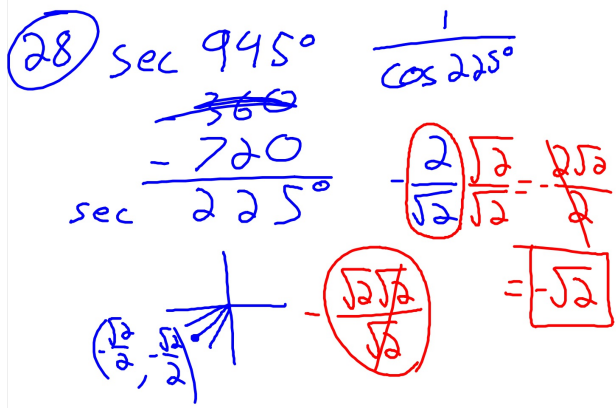 28 sec 945° 1/cos 225°
360
- 720
sec 225°
- 2/√2 √2/√2 = - 2√2/2
= -√2
- √2√2/√2
(-√2/2, -√2/2)